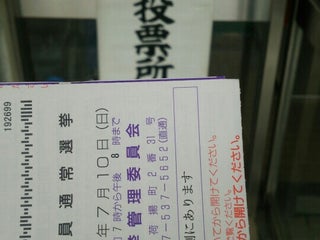 投票所
192699
員通常選挙
年7月10日(日)
7時から午後8時まで
挙管理委員会
荷揚町2番31号
537-5652(直通)
側にあります
てから開けてください。
ください。
から開けてください。